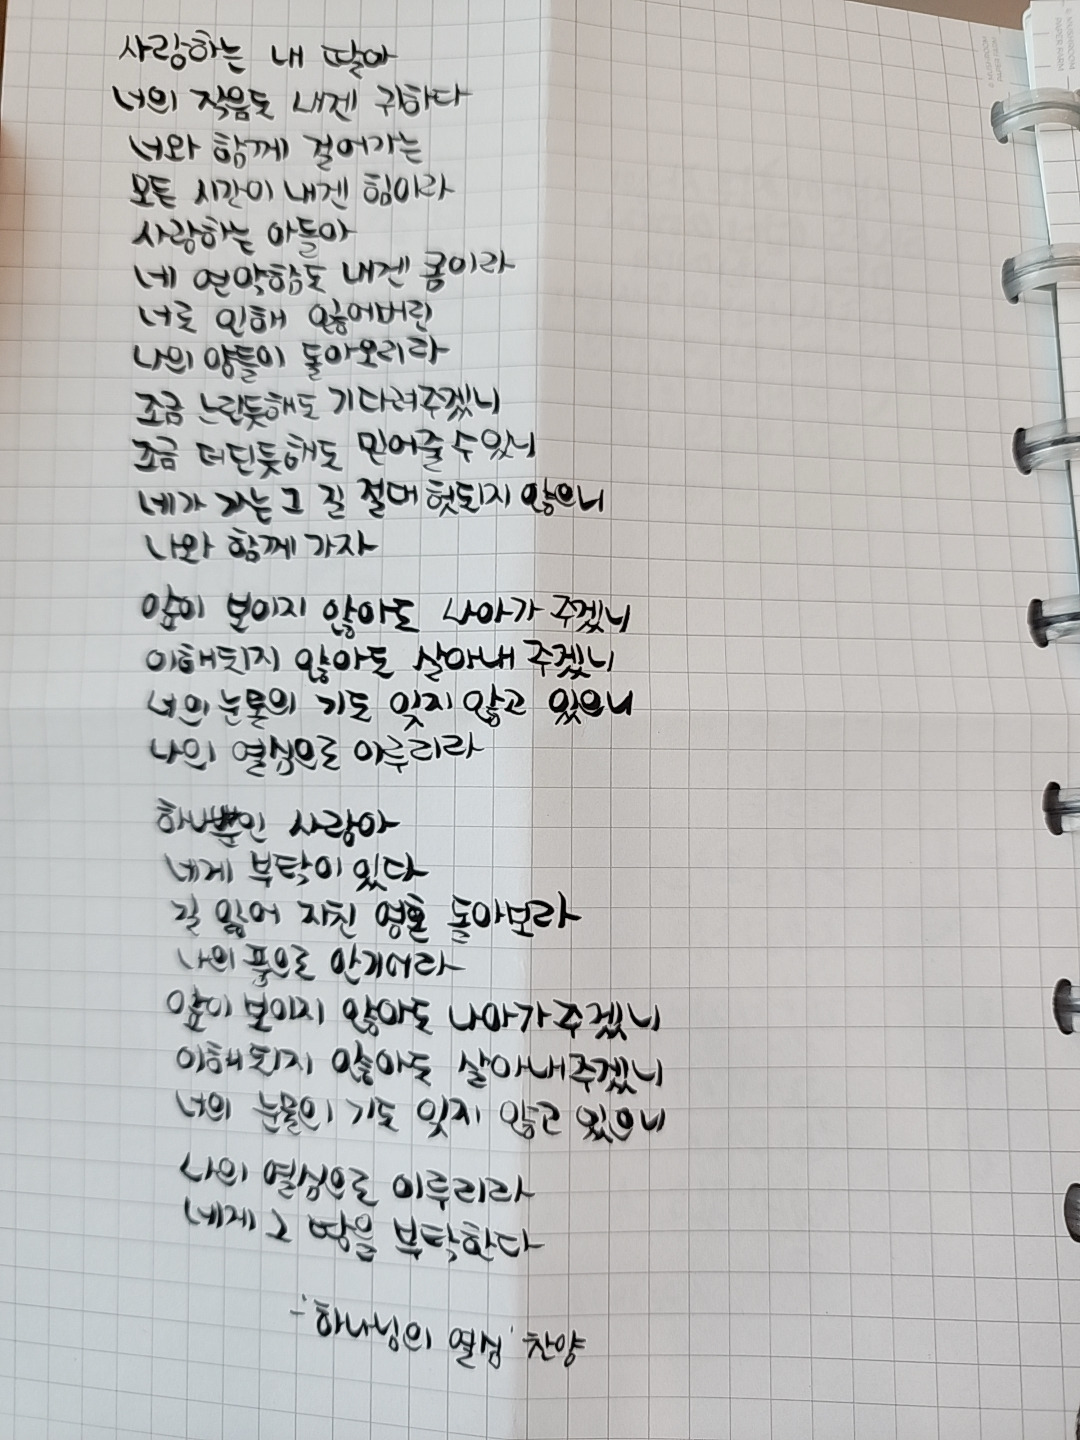 사랑하는 내 딸아
너의 작음도 내겐 귀하다
너와 함께 걸어가는
모든 시간이 내겐 힘이라
사랑하는 아들아
네 연약함도 내겐 큼이라
너로 인해 잃어버린
나의 양들이 돌아오리라
조금 느린듯해도 기다려주겠니
조금 더딘듯해도 믿어줄 수 있니
네가 가는 그 길 절대 헛되지 않으니
나와 함께 가자
앞이 보이지 않아도 나아가 주겠니
이해되지 않아도 살아내 주겠니
너의 눈물의 기도 잊지 않고 있으니
나의 열심으로 이루리라
하나뿐인 사랑아
네게 부탁이 있다
길 잃어 지친 영혼 돌아보라
나의 품으로 안기어라
앞이 보이지 않아도 나아가 주겠니
이해되지 않아도 살아내주겠니
너의 눈물의 기도 잊지 않고 있으니
나의 열심으로 이루리라
네게 그 땅을 부탁한다
-'하나님의 열심' 찬양